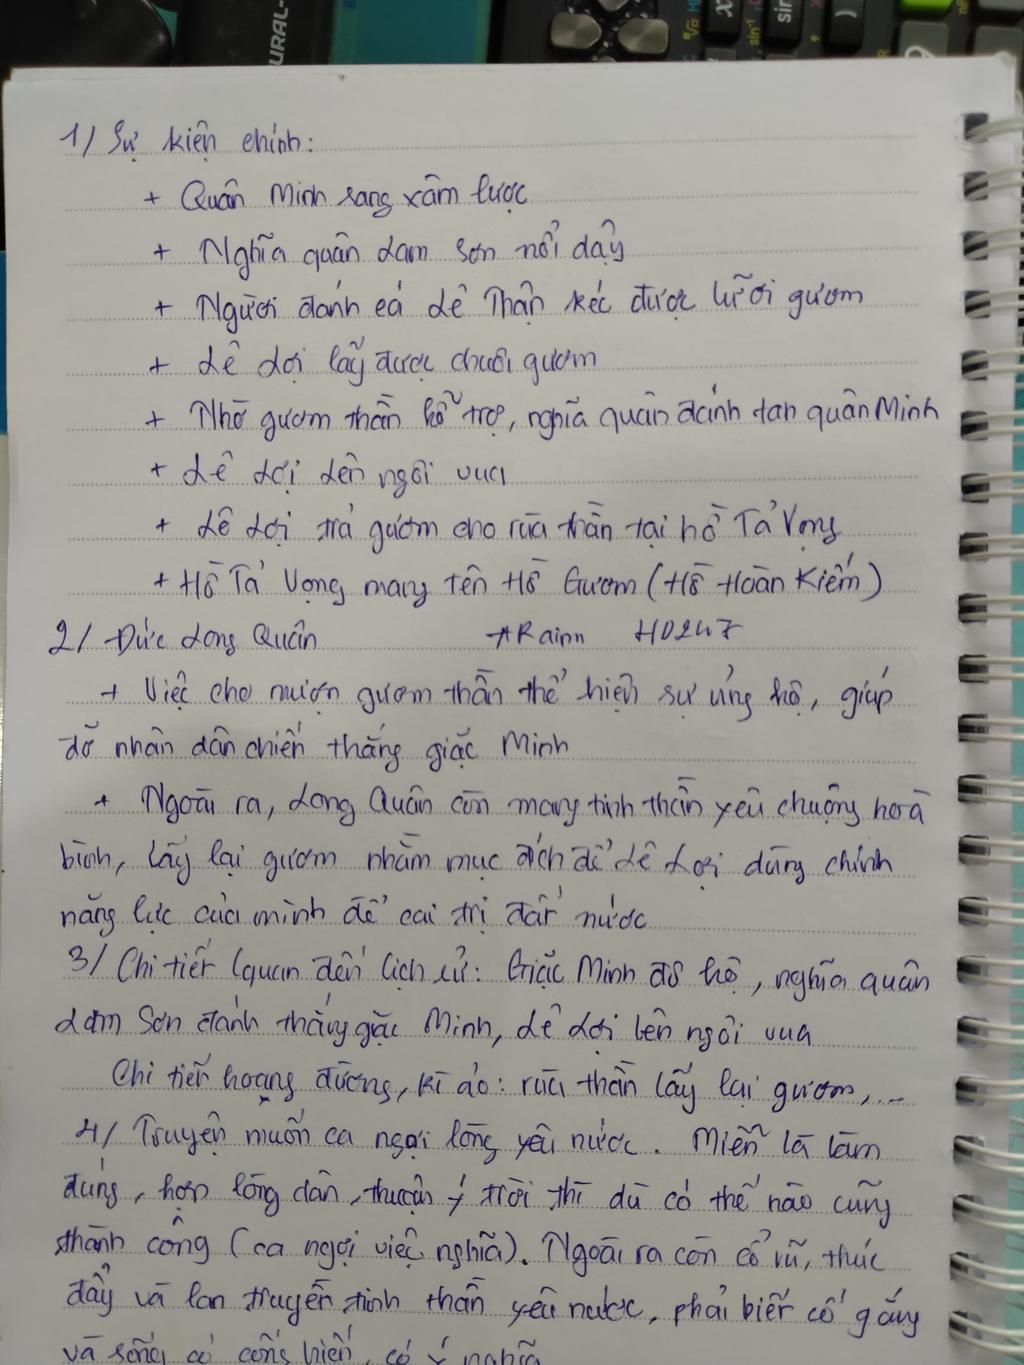 URAL-
sin
sin⁻¹
1/ Sự kiện chính:
+ Quân Minh sang xâm lược
+ Nghĩa quân Lam Sơn nổi dậy
+ Người đánh cá Lê Thận kéc được lưỡi gươm
+ Lê Lợi lấy được chuôi gươm
+ Nhờ gươm thần hỗ trợ, nghĩa quân đánh tan quân Minh
+ Lê Lợi lên ngôi vua
+ Lê Lợi trả gươm cho rùa thần tại hồ Tả Vọng
+ Hồ Tả Vọng mang tên Hồ Gươm (Hồ Hoàn Kiếm)
2/ Đức Long Quân
Rainn HD247
+ Việc cho mượn gươm thần thể hiện sự ủng hộ, giúp
đỡ nhân dân chiến thắng giặc Minh
+ Ngoài ra, Long Quân còn mang tinh thần yêu chuộng hoà
bình, lấy lại gươm nhằm mục đích để Lê Lợi dùng chính
năng lực của mình để cai trị đất nước
3/ Chi tiết lquan đến lịch sử: Giặc Minh đô hộ, nghĩa quân
Lam Sơn đánh thắng giặc Minh, Lê Lợi lên ngôi vua
Chi tiết hoang đường, kì ảo: rùa thần lấy lại gươm,...
4/ Truyện muốn ca ngợi lòng yêu nước. Miễn là làm
đúng, hợp lòng dân, thuận ý trời thì dù có thế nào cũng
thành công (ca ngợi việc nghĩa). Ngoài ra còn cổ vũ, thúc
đẩy và lan truyền tinh thần yêu nước, phải biết cố gắng
và sống có cống hiến, có ý nghĩa